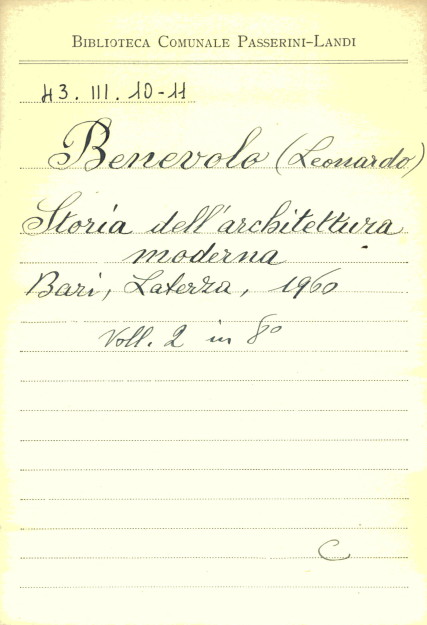 BIBLIOTECA COMUNALE PASSERINI-LANDI
43. III. 10-11
Benevolo (Leonardo)
Storia dell'architettura
moderna
Bari, Laterza, 1960
Voll. 2 in 8º
C